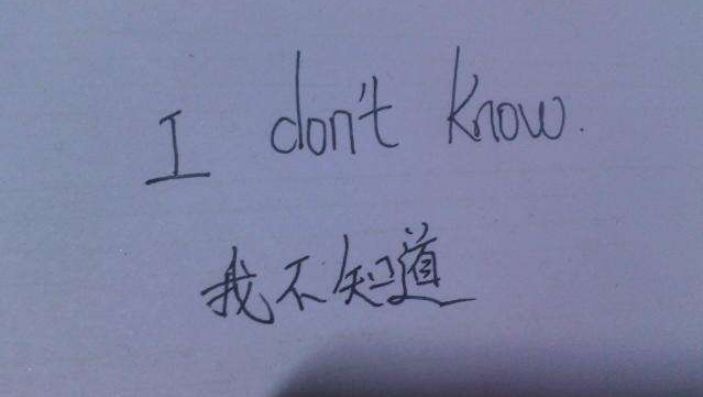 I don't know.
我不知道